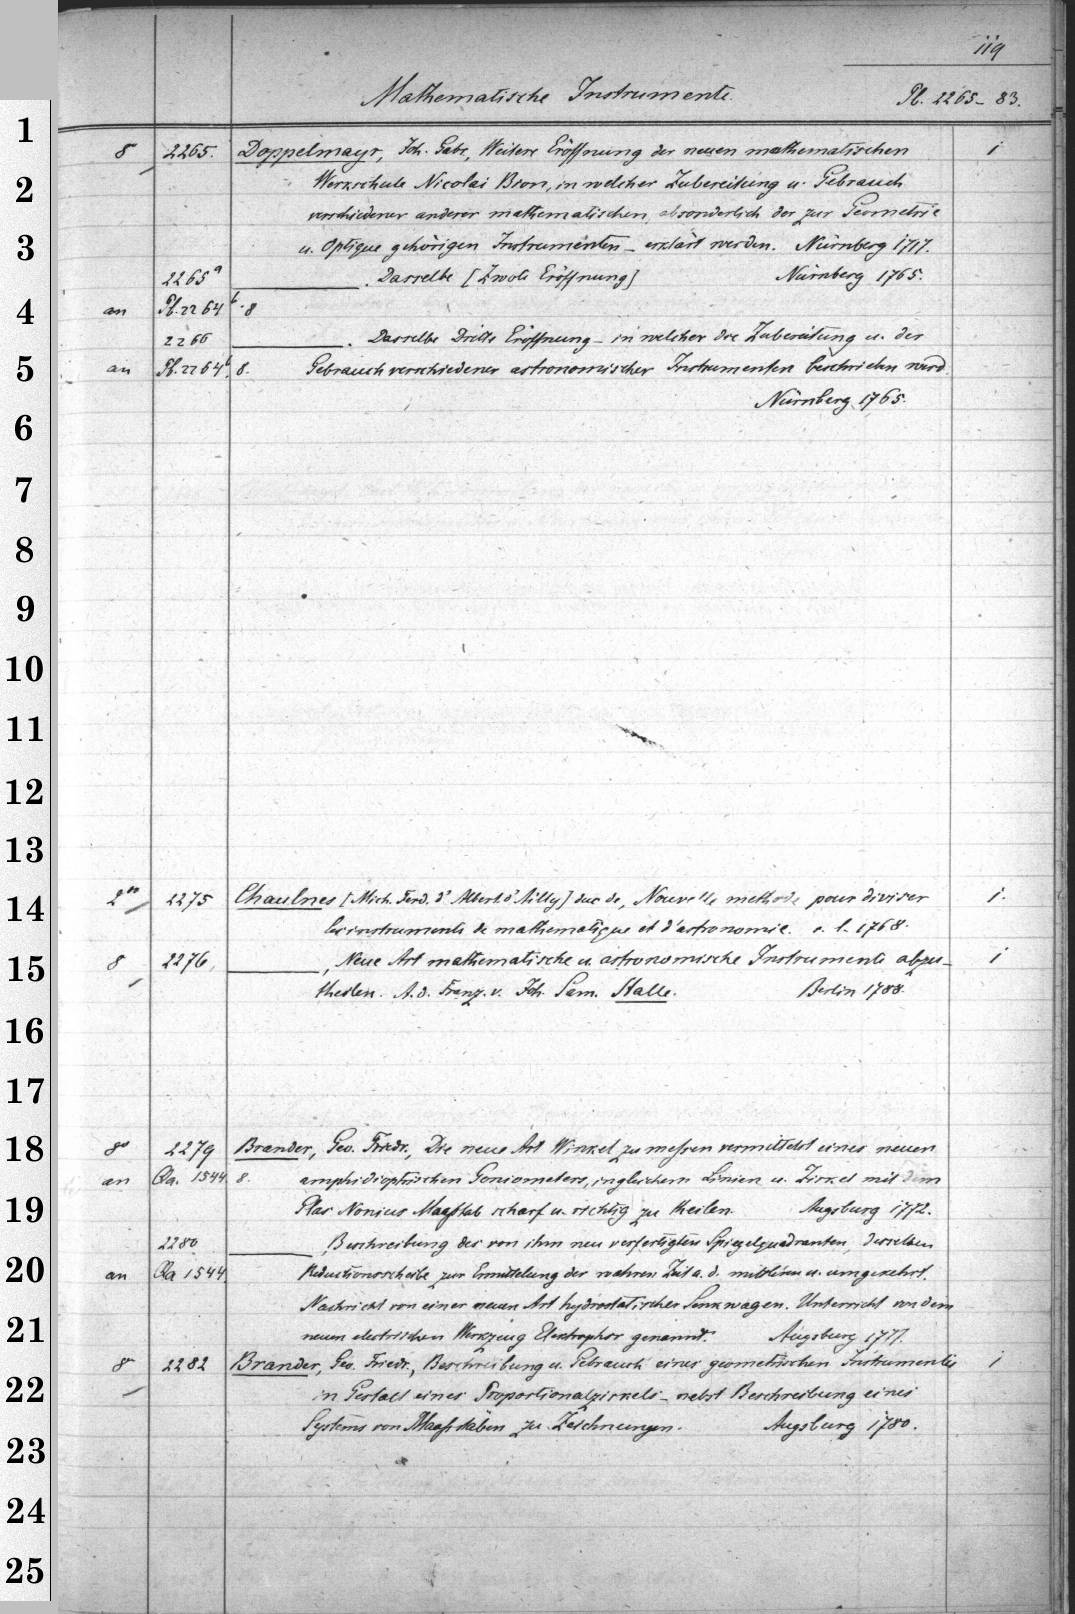 119
Mathematische Instrumente. Pl. 2265-83.
1
8 2265. Doppelmayr, Joh. Gabr., Weitere Eröffnung der neuen mathematischen 1
2
Werkschule Nicolai Bion, in welcher Zubereitung u. Gebrauch
verschiedener anderer mathematischen, absonderlich der zur Geometrie
3
u. Optique gehörigen Instrumenten - erklärt werden. Nürnberg 1717.
2265a ———. Dasselbe [Zwote Eröffnung] Nürnberg 1765.
4
an Pl. 2264b. 8
2266 ———. Dasselbe Dritte Eröffnung - in welcher die Zubereitung u. der
5
an Pl. 2264b. 8. Gebrauch verschiedener astronomischer Instrumenten beschrieben wird.
6
Nürnberg 1765.
7
8
9
10
11
12
13
14
2275 Chaulnes [Mich. Ferd. d'Albert d'Ailly] duc de, Nouvelle methode pour diviser 1.
les instruments de mathematique et d'astronomie. s. l. 1768.
15
8 2276, ———, Neue Art mathematische u. astronomische Instrumente abzu- 1
theilen. A. d. Franz. v. Joh. Sam. Halle. Berlin 1788.
16
17
18
8o 2279 Brander, Geo. Friedr., Die neue Art Winkel zu messen vermittelst eines neuen
an Qa. 1544. 8. amphidioptrischen Goniometers, ingleichem Linien u. Zirkel mit dem
19
Glas Nonius Maasstab scharf u. richtig zu theilen. Augsburg 1772.
2280 ———, Beschreibung des von ihm neu verfertigten Spiegelquadranten, desselben
20
an Qa 1544. Reductionsscheibe zur Ermittelung der wahren Zeit a. d. mittleren u. umgekehrt.
Nachricht von einer neuen Art hydrostatischer Senkwagen. Unterricht von dem
21
neuen electrischen Werkzeug Elektrophor genannt. Augsburg 1777.
8 2282 Brander, Geo. Friedr., Beschreibung u. Gebrauch eines geometrischen Instrumentes 1
22
in Gestalt eines Proportionalzirkels - nebst Beschreibung eines
Systems von Maasstäben zu Zeichnungen. Augsburg 1780.
23
24
25